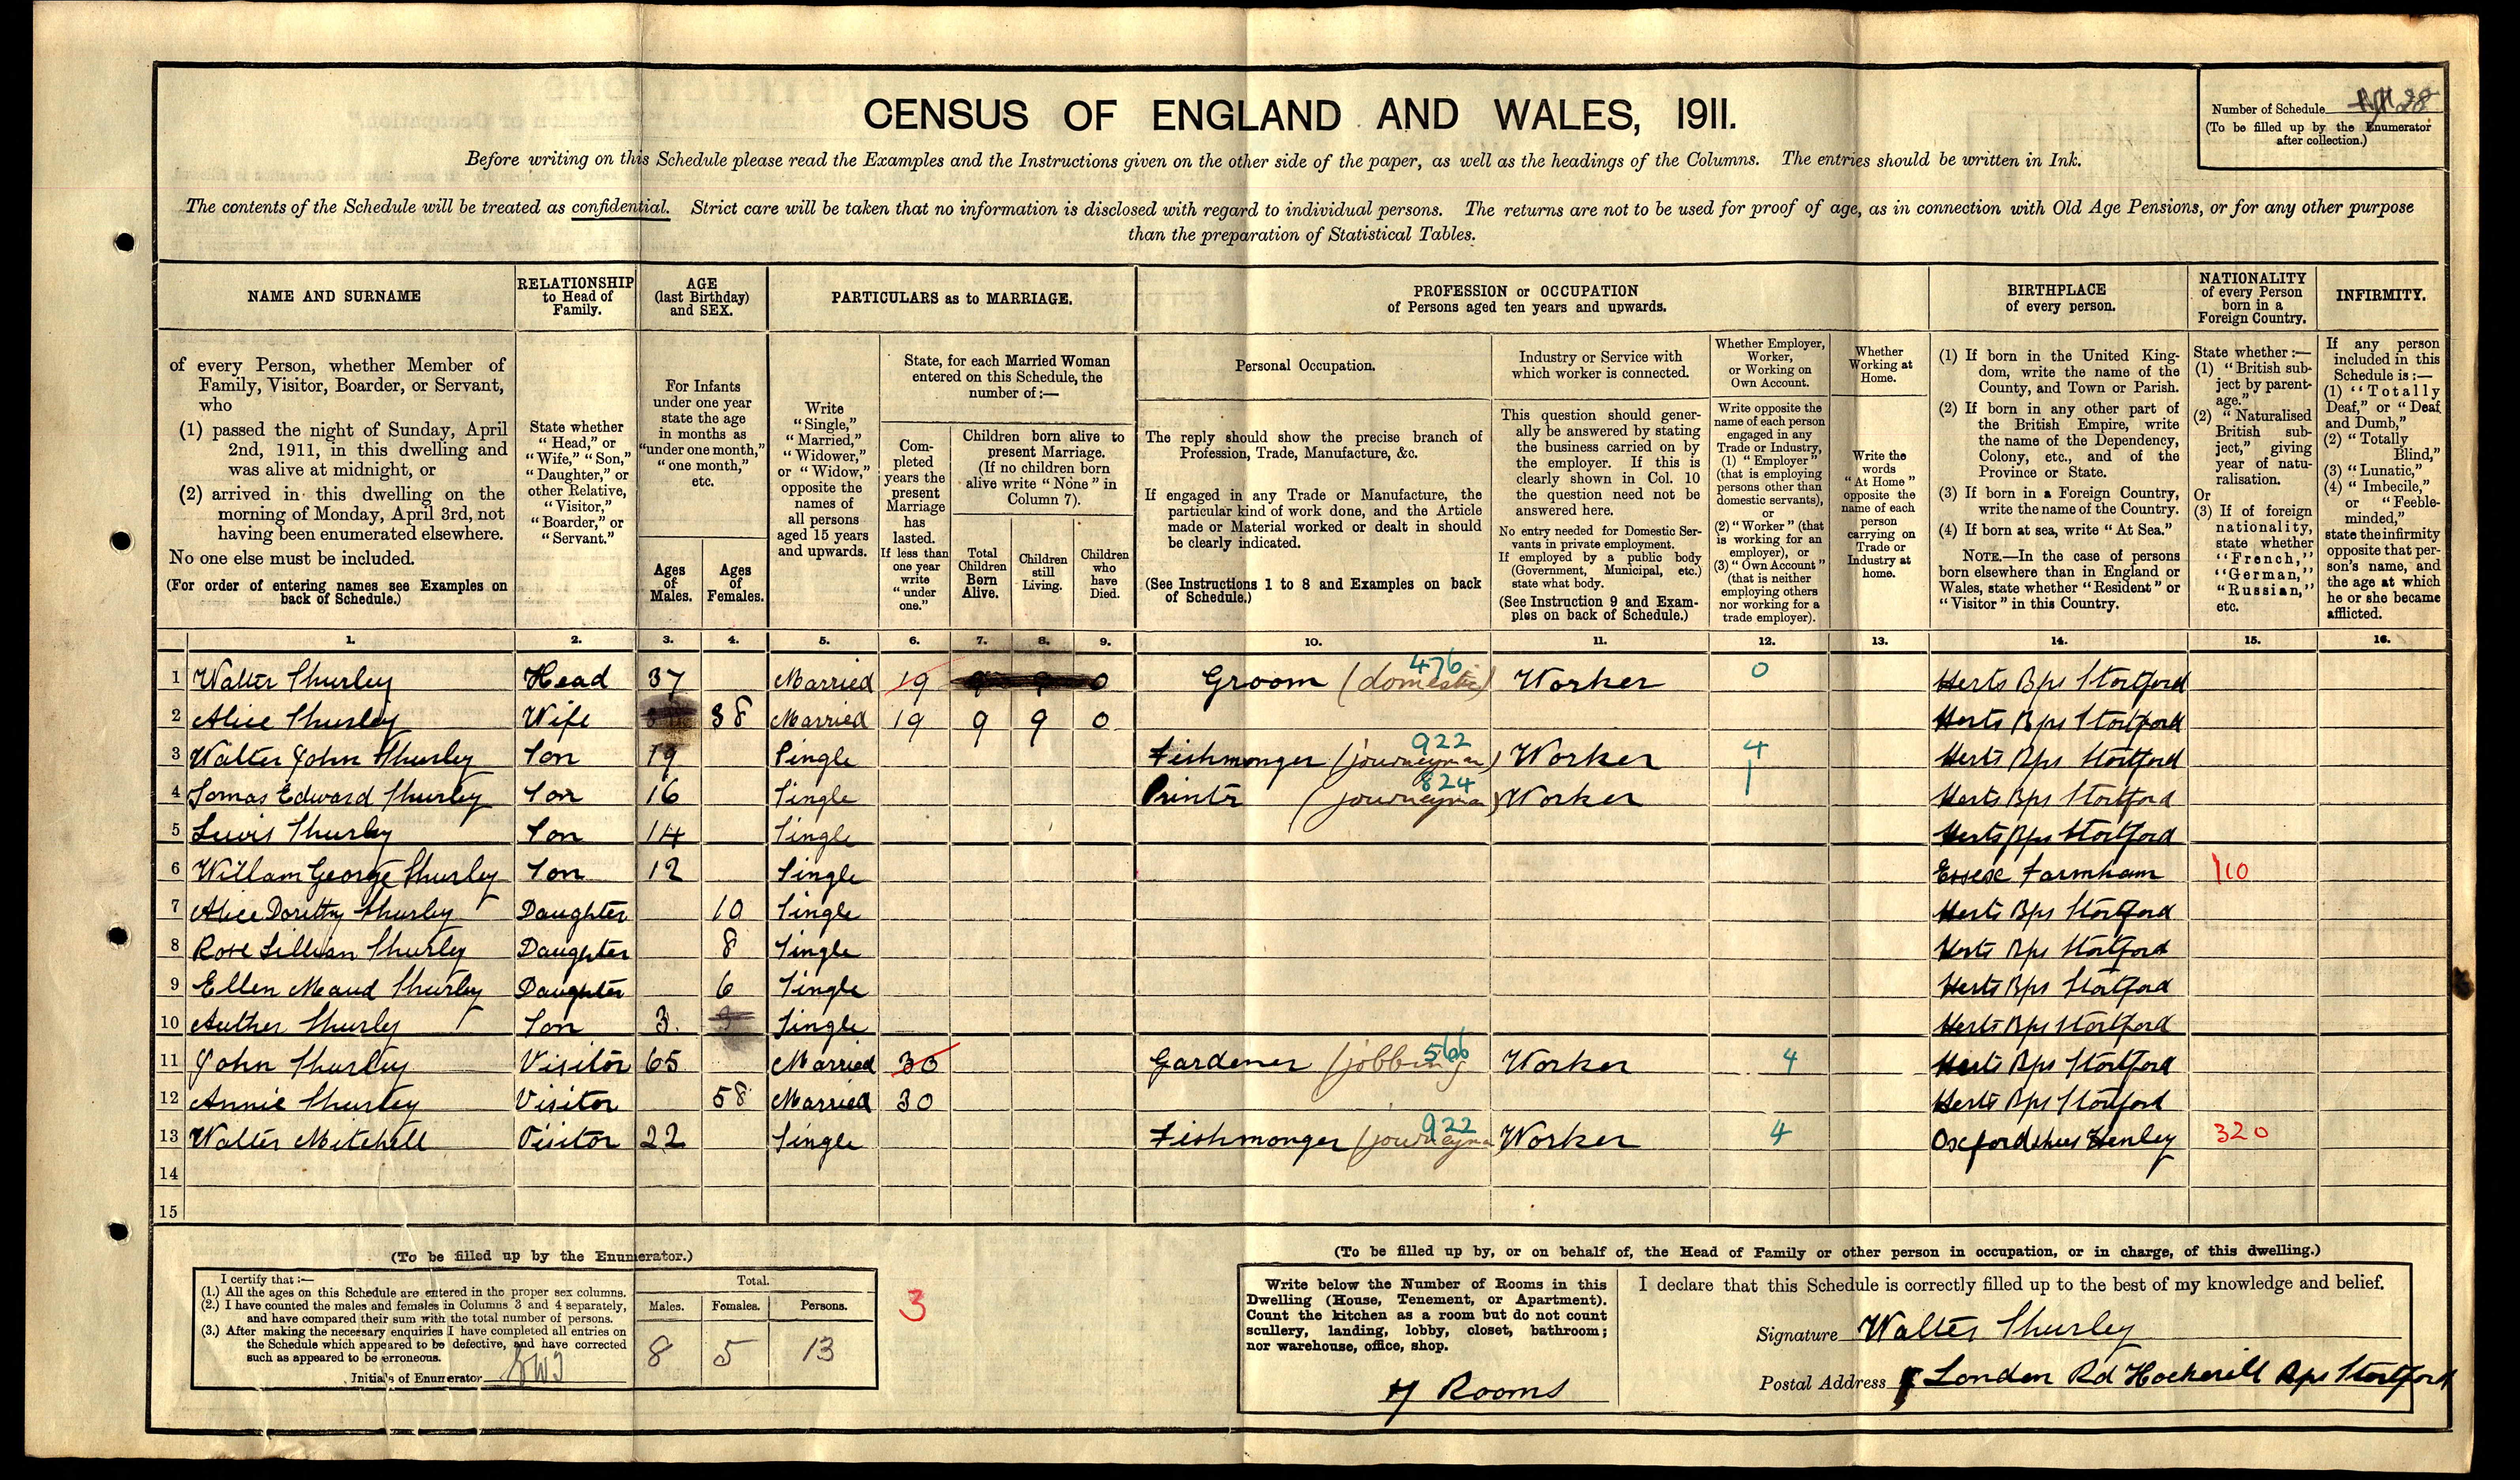 CENSUS OF ENGLAND AND WALES, 1911.
Number of Schedule 28
(To be filled up by the Enumerator
after collection.)
Before writing on this Schedule please read the Examples and the Instructions given on the other side of the paper, as well as the headings of the Columns. The entries should be written in Ink.
The contents of the Schedule will be treated as confidential. Strict care will be taken that no information is disclosed with regard to individual persons. The returns are not to be used for proof of age, as in connection with Old Age Pensions, or for any other purpose
than the preparation of Statistical Tables.
NAME AND SURNAME
of every Person, whether Member of
Family, Visitor, Boarder, or Servant,
who
(1) passed the night of Sunday, April
2nd, 1911, in this dwelling and
was alive at midnight, or
(2) arrived in this dwelling on the
morning of Monday, April 3rd, not
having been enumerated elsewhere.
No one else must be included.
(For order of entering names see Examples on
back of Schedule.)
RELATIONSHIP
to Head of
Family.
State whether
"Head," or
"Wife," "Son,"
"Daughter," or
other Relative,
"Visitor,"
"Boarder," or
"Servant."
AGE
(last Birthday)
and SEX.
For Infants
under one year
state the age
in months as
"under one month,"
"one month,"
etc.
Ages
of
Males.
Ages
of
Females.
PARTICULARS as to MARRIAGE.
Write
"Single,"
"Married,"
"Widower,"
or "Widow,"
opposite the
names of
all persons
aged 15 years
and upwards.
State, for each Married Woman
entered on this Schedule, the
number of:—
Com-
pleted
years the
present
Marriage
has
lasted.
If less than
one year
write
"under
one."
Children born alive to
present Marriage.
(If no children born
alive write "None" in
Column 7).
Total
Children
Born
Alive.
Children
still
Living.
Children
who
have
Died.
PROFESSION or OCCUPATION
of Persons aged ten years and upwards.
Personal Occupation.
The reply should show the precise branch of
Profession, Trade, Manufacture, &c.
If engaged in any Trade or Manufacture, the
particular kind of work done, and the Article
made or Material worked or dealt in should
be clearly indicated.
(See Instructions 1 to 8 and Examples on back
of Schedule.)
Industry or Service with
which worker is connected.
This question should gener-
ally be answered by stating
the business carried on by
the employer. If this is
clearly shown in Col. 10
the question need not be
answered here.
No entry needed for Domestic Ser-
vants in private employment.
If employed by a public body
(Government, Municipal, etc.)
state what body.
(See Instruction 9 and Exam-
ples on back of Schedule.)
Whether Employer,
Worker,
or Working on
Own Account.
Write opposite the
name of each person
engaged in any
Trade or Industry,
(1) "Employer"
(that is employing
persons other than
domestic servants),
or
(2) "Worker" (that
is working for an
employer), or
(3) "Own Account"
(that is neither
employing others
nor working for a
trade employer).
Whether
Working at
Home.
Write the
words
"At Home"
opposite the
name of each
person
carrying on
Trade or
Industry at
home.
BIRTHPLACE
of every person.
(1) If born in the United King-
dom, write the name of the
County, and Town or Parish.
(2) If born in any other part of
the British Empire, write
the name of the Dependency,
Colony, etc., and of the
Province or State.
(3) If born in a Foreign Country,
write the name of the Country.
(4) If born at sea, write "At Sea."
NOTE.—In the case of persons
born elsewhere than in England or
Wales, state whether "Resident" or
"Visitor" in this Country.
NATIONALITY
of every Person
born in a
Foreign Country.
State whether:—
(1) "British sub-
ject by parent-
age."
(2) "Naturalised
British sub-
ject," giving
year of natu-
ralisation.
Or
(3) If of foreign
nationality,
state whether
"French,"
"German,"
"Russian,"
etc.
INFIRMITY.
If any person
included in this
Schedule is:—
(1) "Totally
Deaf," or "Deaf
and Dumb,"
(2) "Totally
Blind,"
(3) "Lunatic,"
(4) "Imbecile,"
or "Feeble-
minded,"
state the infirmity
opposite that per-
son's name, and
the age at which
he or she became
afflicted.
1. 2. 3. 4. 5. 6. 7. 8. 9. 10. 11. 12. 13. 14. 15. 16.
1 Walter Thurley Head 37 Married 19 9 9 0 Groom (domestic) 476 Worker 0 Herts Bps Stortford
2 Alice Thurley Wife 38 Married 19 9 9 0 Herts Bps Stortford
3 Walter John Thurley Son 19 Single Fishmonger (journeyman) 922 Worker 4 Herts Bps Stortford
4 Tomas Edward Thurley Son 16 Single Printr (journeyman) 824 Worker 1 Herts Bps Stortford
5 Lewis Thurley Son 14 Single Herts Bps Stortford
6 Willam George Thurley Son 12 Single Essex Farmham 110
7 Alice Doretthy Thurley Daughter 10 Single Herts Bps Stortford
8 Rose Lillian Thurley Daughter 8 Single Herts Bps Stortford
9 Ellen Maud Thurley Daughter 6 Single Herts Bps Stortford
10 Auther Thurley Son 3 Single Herts Bps Stortford
11 John Thurley Visitor 65 Married 30 Gardener (jobbing 566 Worker 4 Herts Bps Stortford
12 Annie Thurley Visitor 58 Married 30 Herts Bps Stortford
13 Walter Mitchell Visitor 22 Single Fishmonger (journeyman 922 Worker 4 Oxfordshire Henley 320
14
15
(To be filled up by the Enumerator.)
I certify that:—
(1.) All the ages on this Schedule are entered in the proper sex columns.
(2.) I have counted the males and females in Columns 3 and 4 separately,
and have compared their sum with the total number of persons.
(3.) After making the necessary enquiries I have completed all entries on
the Schedule which appeared to be defective, and have corrected
such as appeared to be erroneous.
Initials of Enumerator
Total.
Males. Females. Persons.
8 5 13
3
(To be filled up by, or on behalf of, the Head of Family or other person in occupation, or in charge, of this dwelling.)
Write below the Number of Rooms in this
Dwelling (House, Tenement, or Apartment).
Count the kitchen as a room but do not count
scullery, landing, lobby, closet, bathroom;
nor warehouse, office, shop.
4 Rooms
I declare that this Schedule is correctly filled up to the best of my knowledge and belief.
Signature Walter Thurley
Postal Address London Rd Hockerill Bps Stortford